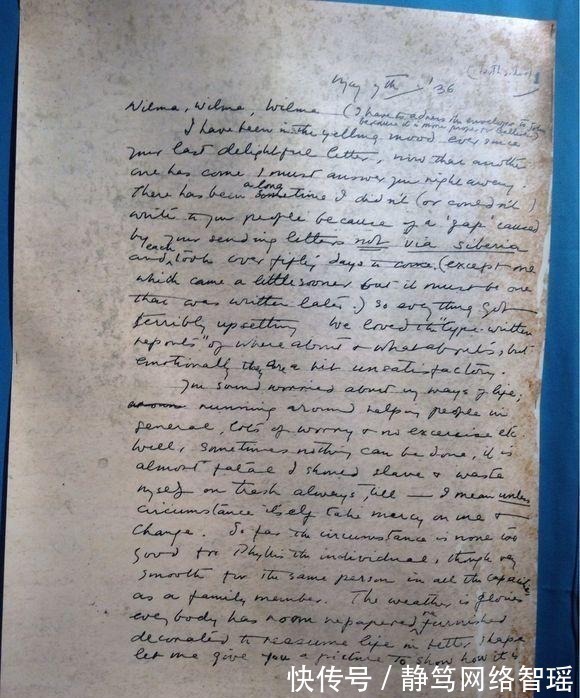 May 7th '36
Wilma, Wilma, Wilma (I have to address the envelope to John
because it is more proper
I have been in the yelling mood ever since
your last delightful letter, now that another
one has come I must answer you right away.
There has been a long sometime I didn't (or couldn't)
write to you people because of a 'gap' caused
by your sending letters not via Siberia
and each took over fifty days to come (except one
which came a little sooner but it must be one
that was written later.) So everything got
terribly upsetting We loved the "type-written
reports" of where about & what abouts, but
emotionally they are a bit unsatisfactory.
You sound worried about my ways of life;
running around helping people in
general, lots of worry & no excercise etc.
Well, sometimes nothing can be done, it is
almost fatal I should slave & waste
myself on trash always, till — I mean unless
circumstance itself take mercy on me &
change. So far the circumstance is none too
good for Phyllis the individual, though very
smooth for the same person in all the capacities
as a family member. The weather is glorious
everybody has room repapered, refurnished
decorated to reassume life in better shape
let me give you a picture to show how it is
快传号／静笃网络智瑶